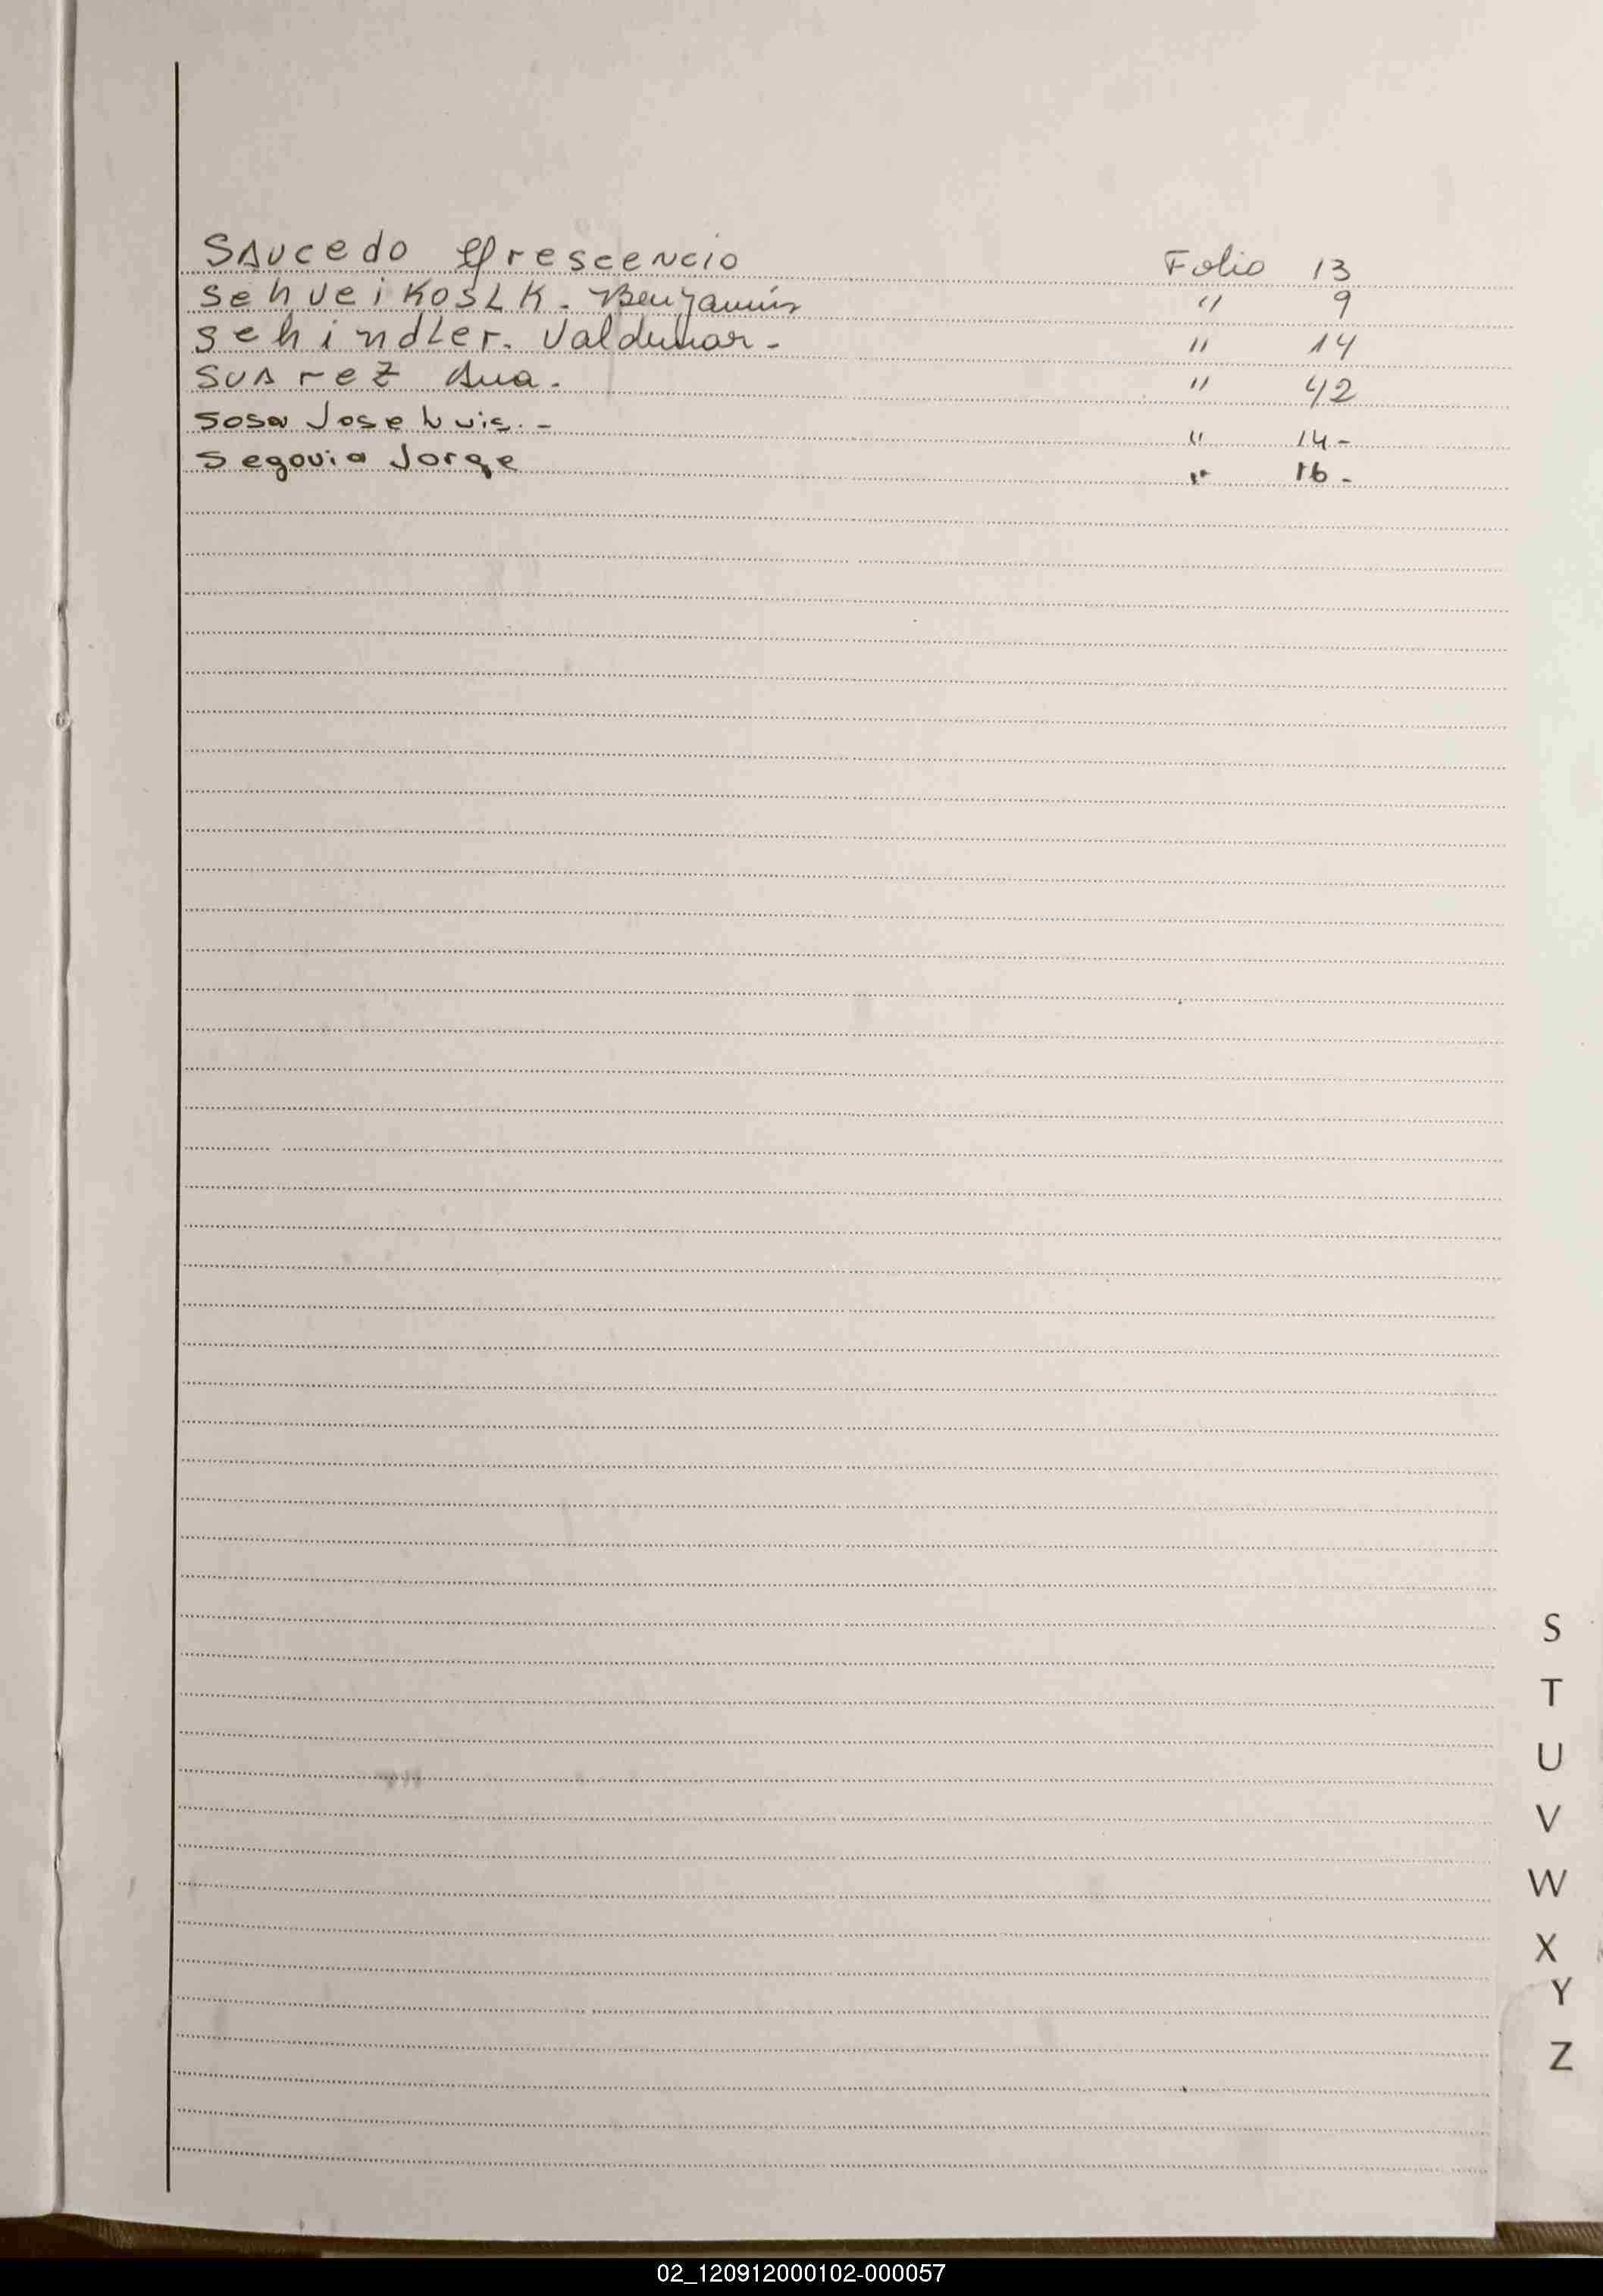 Saucedo Crescencio Folio 13
Schveikoslk. Benjamín " 9
Schindler. Valdemar - " 14
Suarez Ana. " 42
Sosa Jose Luis. - " 14 -
Segovia Jorge " 16 -
S
T
U
V
W
X
Y
Z
02_120912000102-000057